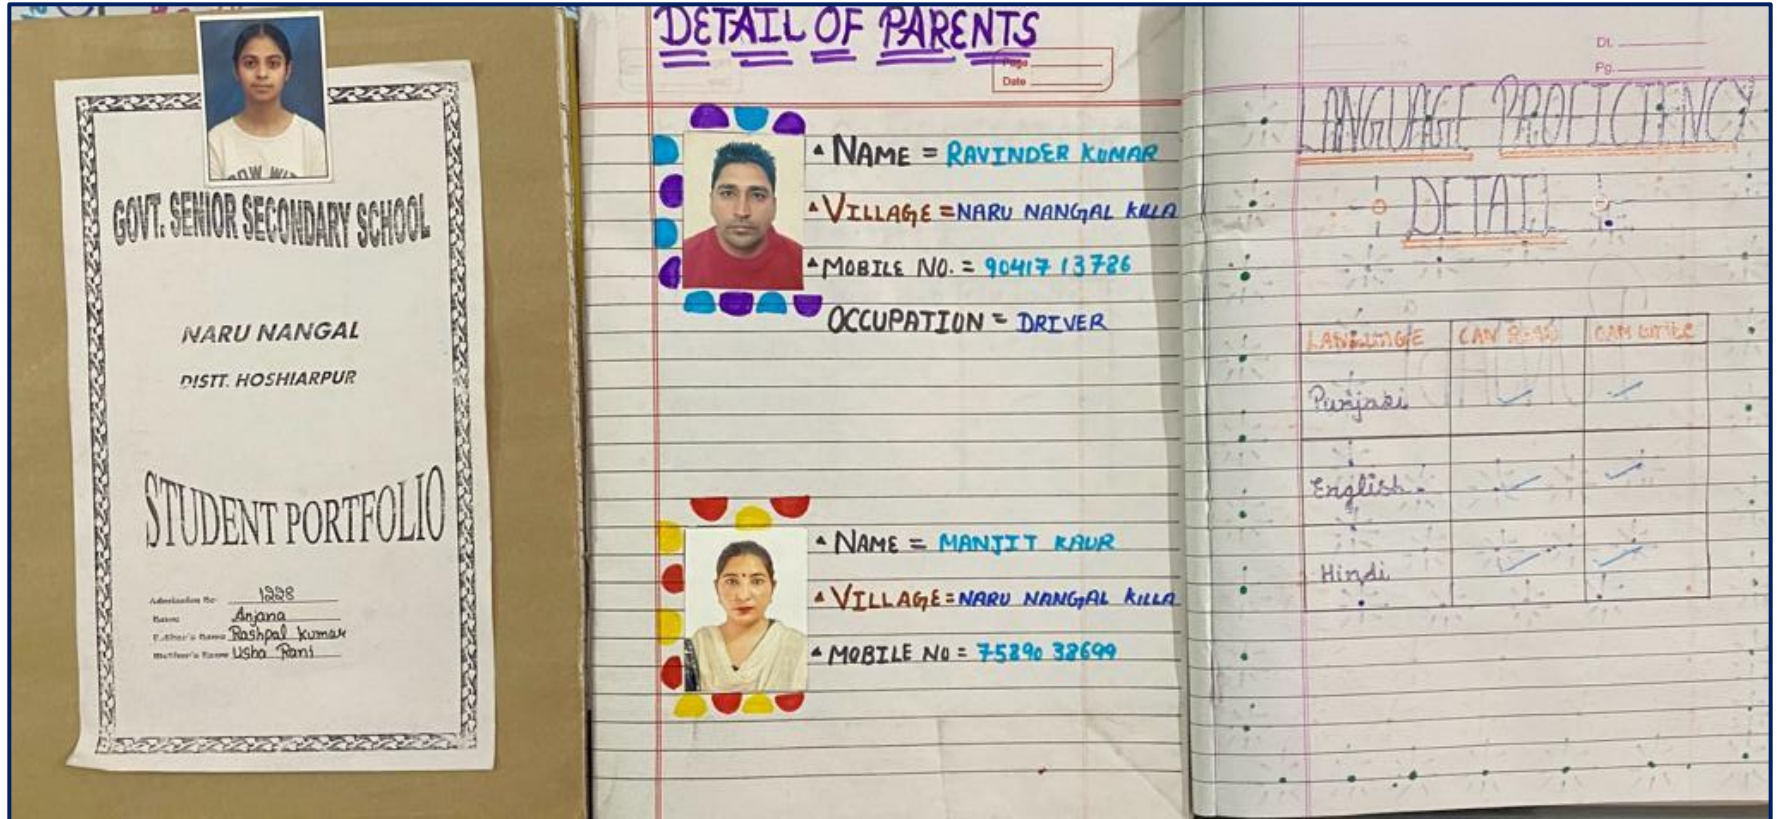 GOVT. SENIOR SECONDARY SCHOOL
NARU NANGAL
DISTT. HOSHIARPUR
STUDENT PORTFOLIO
Admission No 1228
Name Anjana
Father's Name Rashpal Kumar
Mother's Name Usha Rani
DETAIL OF PARENTS
Page
Date
NAME = RAVINDER KUMAR
VILLAGE = NARU NANGAL KILLA
MOBILE NO. = 90417 13786
OCCUPATION = DRIVER
NAME = MANJIT KAUR
VILLAGE = NARU NANGAL KILLA
MOBILE NO = 75890 38699
Dt.
Pg.
LANGUAGE PROFICIENCY
DETAIL
LANGUAGE CAN READ CAN write
Punjabi
English
Hindi